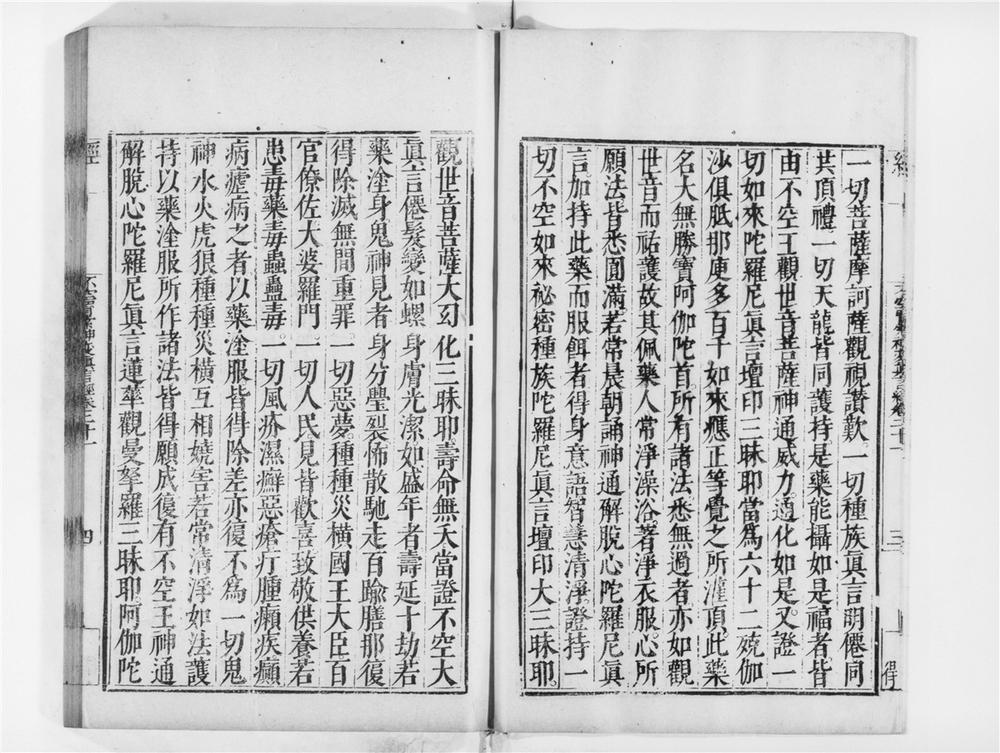 一切菩薩摩訶薩觀視讚歎一切種族眞言明僊同
共頂禮一切天龍皆同護持是藥能攝如是福者皆
由不空王觀世音菩薩神通威力通化如是又證一
切如來陀羅尼眞言壇印三昧耶當爲六十二殑伽
沙俱胝那庾多百千如來應正等覺之所灌頂此藥
名大無勝寶阿伽陀首所有諸法悉無過者亦如觀
世音而祐護故其佩藥人常淨澡浴著淨衣服心所
願法皆悉圓滿若常晨朝誦神通解脫心陀羅尼眞
言加持此藥而服餌者得身意語智慧清淨證持一
切不空如來祕密種族陀羅尼眞言壇印大三昧耶
觀世音菩薩大幻化三昧耶壽命無夭當證不空大
眞言僊髮變如螺身膚光潔如盛年者壽延十劫若
藥塗身鬼神見者身分亹裂怖散馳走百踰膳那復
得除滅無間重罪一切惡夢種種災橫國王大臣百
官僚佐大婆羅門一切人民見皆歡喜致敬供養若
患毒藥毒蟲蠱毒一切風疥濕癬惡瘡疔腫癩疾癲
病瘧病之者以藥塗服皆得除差亦復不爲一切鬼
神水火虎狼種種災橫互相嬈害若常清淨如法護
持以藥塗服所作諸法皆得願成復有不空王神通
解脫心陀羅尼眞言蓮華觀曼拏羅三昧耶阿伽陀
經
四
三
得